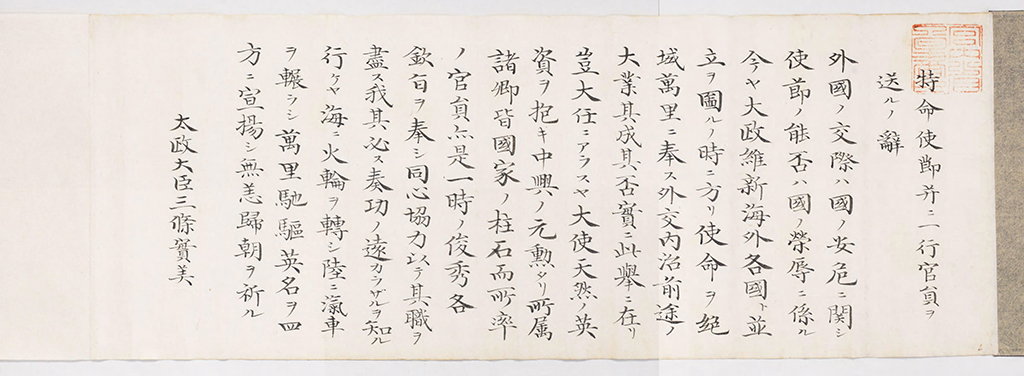 特命使節并ニ一行官員ヲ
送ルノ辭
外國ノ交際ハ國ノ安危ニ関シ
使節ノ能否ハ國ノ榮辱ニ係ル
今ヤ大政維新海外各國ト並
立ヲ圖ルノ時ニ方リ使命ヲ絶
域萬里ニ奉ス外交内治前途ノ
大業其成其否實ニ此擧ニ在リ
豈大任ニアラスヤ大使天然ノ英
資ヲ抱キ中興ノ元勲タリ所属
諸卿皆國家ノ柱石而所率
ノ官員亦是一時ノ俊秀各
欽旨ヲ奉シ同心協力以テ其職ヲ
盡ス我其必ス奏功ノ遠カラサルヲ知ル
行ケヤ海ニ火輪ヲ轉シ陸ニ瀛車
ヲ輾ラシ萬里馳驅英名ヲ四
方ニ宣揚シ無恙歸朝ヲ祈ル
太政大臣三條實美